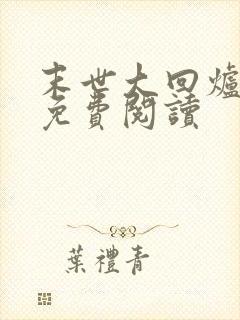 末世大回爐
免費閱讀
葉禮青